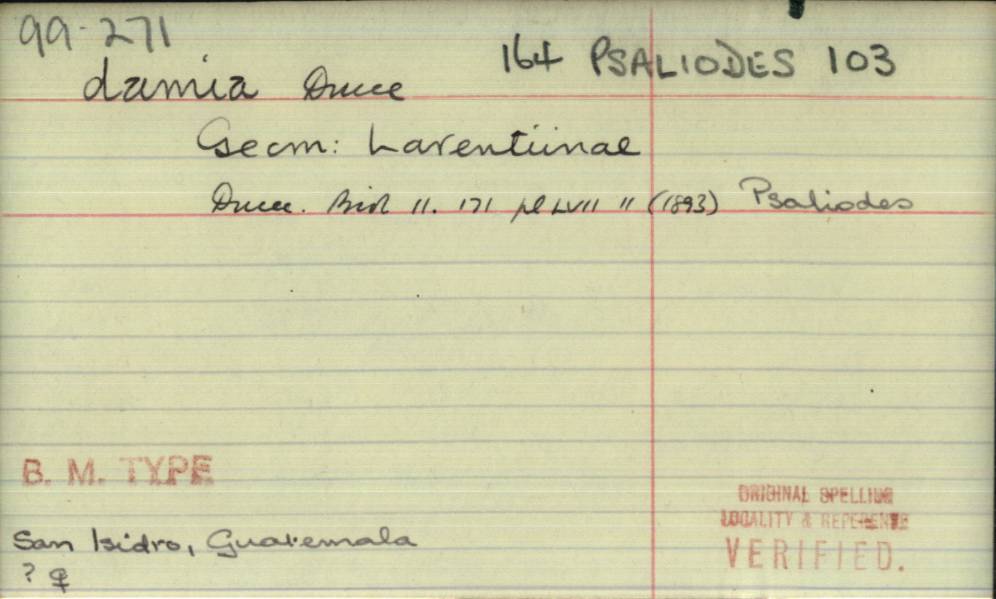 99-271
164 PSALIODES 103
damia Druce
Geom: Larentiinae
Druce. Biol 11. 171 pl LVII 11 (1893) Psaliodes
B. M. TYPE
ORIGINAL SPELLING
LOCALITY & REFERENCE
VERIFIED.
San Isidro, Guatemala
? ♀